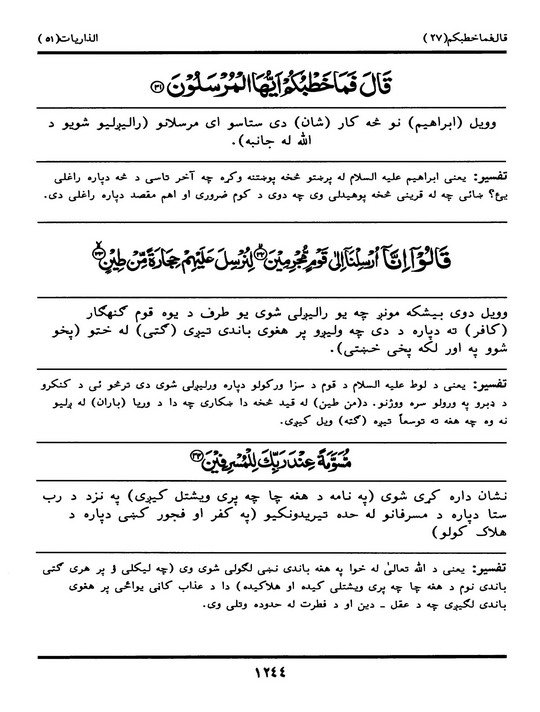 قال فما خطبکم (۲۷)
الذاریات (۵۱)
قَالَ فَمَا خَطْبُكُمْ اَيُّهَا الْمُرْسَلُوْنَ ﴿۳۱﴾
وویل (ابراهیم) نو څه کار (شان) دی ستاسو ای مرسلانو (رالیږلیو شویو د
الله له جانبه).
تفسیر: یعنی ابراهیم علیه السلام له پرښتو څخه پوښتنه وکړه چه آخر تاسی د څه دپاره راغلی
یئ؟ ښائی چه له قرینی څخه پوهیدلی وی چه دوی د کوم ضروری او اهم مقصد دپاره راغلی دی.
قَالُوْٓا اِنَّآ اُرْسِلْنَآ اِلٰى قَوْمٍ مُّجْرِمِيْنَ ﴿۳۲﴾ لِنُرْسِلَ عَلَيْهِمْ حِجَارَةً مِّنْ طِيْنٍ ﴿۳۳﴾
وویل دوی بیشکه مونږ چه یو رالیږلی شوی یو طرف د یوه قوم گنهگار
(کافر) ته دپاره د دی چه ولیږو پر هغوی باندی تیږی (گتی) له ختو (پخو
شوو په اور لکه پخی خښتی).
تفسیر: یعنی د لوط علیه السلام د قوم د سزا ورکولو دپاره ورلیږلی شوی دی ترڅو ئی د کنکرو
د ډبرو په ورولو سره ووژنو. د(من طین) له قید څخه دا ښکاری چه دا د وریا (باران) له ږلیو
نه وه چه هغه ته توسعاً تیږه (گته) ویل کیږی.
مُّسَوَّمَةً عِنْدَ رَبِّكَ لِلْمُسْرِفِيْنَ ﴿۳۴﴾
نشان داره کړی شوی (په نامه د هغه چا چه پری ویشتل کیږی) په نزد د رب
ستا دپاره د مسرفانو له حده تیریدونکیو (په کفر او فجور کښی دپاره د
هلاک کولو)
تفسیر: یعنی د الله تعالیٰ له خوا په هغه باندی نښی لگولی شوی وی (چه لیکلی ؤ پر هری گتی
باندی نوم د هغه چا چه پری ویشتلی کیده او هلاکیده) دا د عذاب کانی یواځی پر هغوی
باندی لگیږی چه د عقل ـ دین او د فطرت له حدوده وتلی وی.
۱۲۴۴